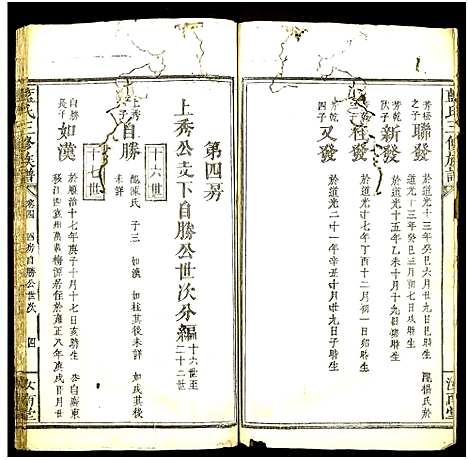 藍氏三修族譜
芳極三子 聯發 於道光十三年癸巳六月廿九日巳時生 配楊氏於
道光十三年癸巳三月初七日
芳乾子 新發 於道光十五年乙未十月十七日卯時生
芳乾三子 桂發 於道光十七年丁酉十二月廿一日子時生
芳乾四子 又發 於道光二十一年辛丑十月廿九日子時生
汝南堂
第四房
上秀公支下自勝公世次分編 十六世至二十二世
十六世
上秀子 自勝 配陳氏 子三 如漢 如桂其後未詳 如成其後
未詳
十七世
自勝長子 如漢 於順治十七年庚子十月十七日亥時生 公自廣東
移江西袁州萬載梅源居住於雍正八年庚戌十月
藍氏三修族譜
卷四 四房自勝公世次
四
汝南堂